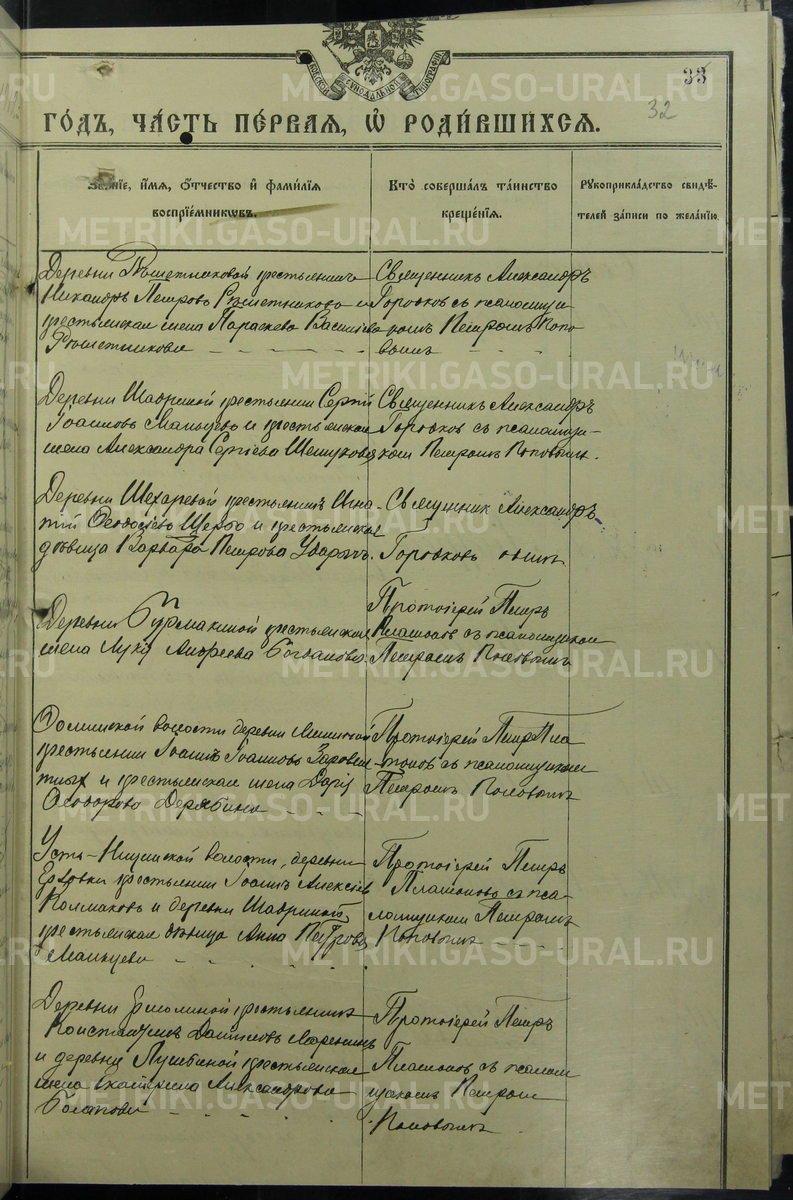 МОСКОВСКОЙ СѴНОДАЛЬНОЙ ТИПОГРАФІИ
33
32
ГОДЪ, ЧАСТЬ ПЕРВАЯ, Ѡ РОДИВШИХСЯ.
Званіе, имя, отчество и фамилія
воспріемниковъ.
Кто совершалъ таинство
крещенія.
Рукоприкладство свидѣ-
телей записи по желанію.
Деревни Рѣшетниковой крестьянинъ
Никаноръ Петровъ Рѣшетниковъ и
крестьянская жена Параскева Василіева
Рѣшетникова
Священникъ Александръ
Горбковъ съ псаломщи
комъ Петромъ Попо
вымъ
Деревни Шавриной крестьянинъ Сергій
Іоанновъ Мальцевъ и крестьянская
жена Александра Сергіева
Священникъ Александръ
Горбковъ съ псаломщи-
комъ Петромъ Поповымъ.
Деревни крестьянинъ Игна-
тій и крестьянская
дѣвица Варвара Петрова
Священник Александръ
Горбковъ одинъ
Деревни Бурмакиной крестьянская
жена Андреева Богданова.
Протоіерей Петръ
Платоновъ съ псаломщикомъ
Петромъ Поповымъ
волости деревни
крестьянинъ Іоаннъ Іоанновъ
и крестьянская жена Дарія
Ѳеодорова Дерябина
Протоіерей Петръ Пла
тоновъ съ псаломщикомъ
Петромъ Поповымъ
Усть-Ницинской волости, деревни
Ерзовки крестьянинъ Іоаннъ Алексіевъ
Колмаковъ и деревни Шавриной
крестьянская дѣвица Анна Петрова
Мальцева
Протоіерей Петръ
Платоновъ съ пса-
ломщикомъ Петромъ
Поповымъ
Деревни Ермолиной крестьянинъ
Константинъ Даниловъ
и деревни крестьянская
жена Екатерина Александрова
Протоіерей Петръ
Платоновъ съ псалом
щикомъ Петромъ
Поповымъ
METRIKI.GASO-URAL.RU